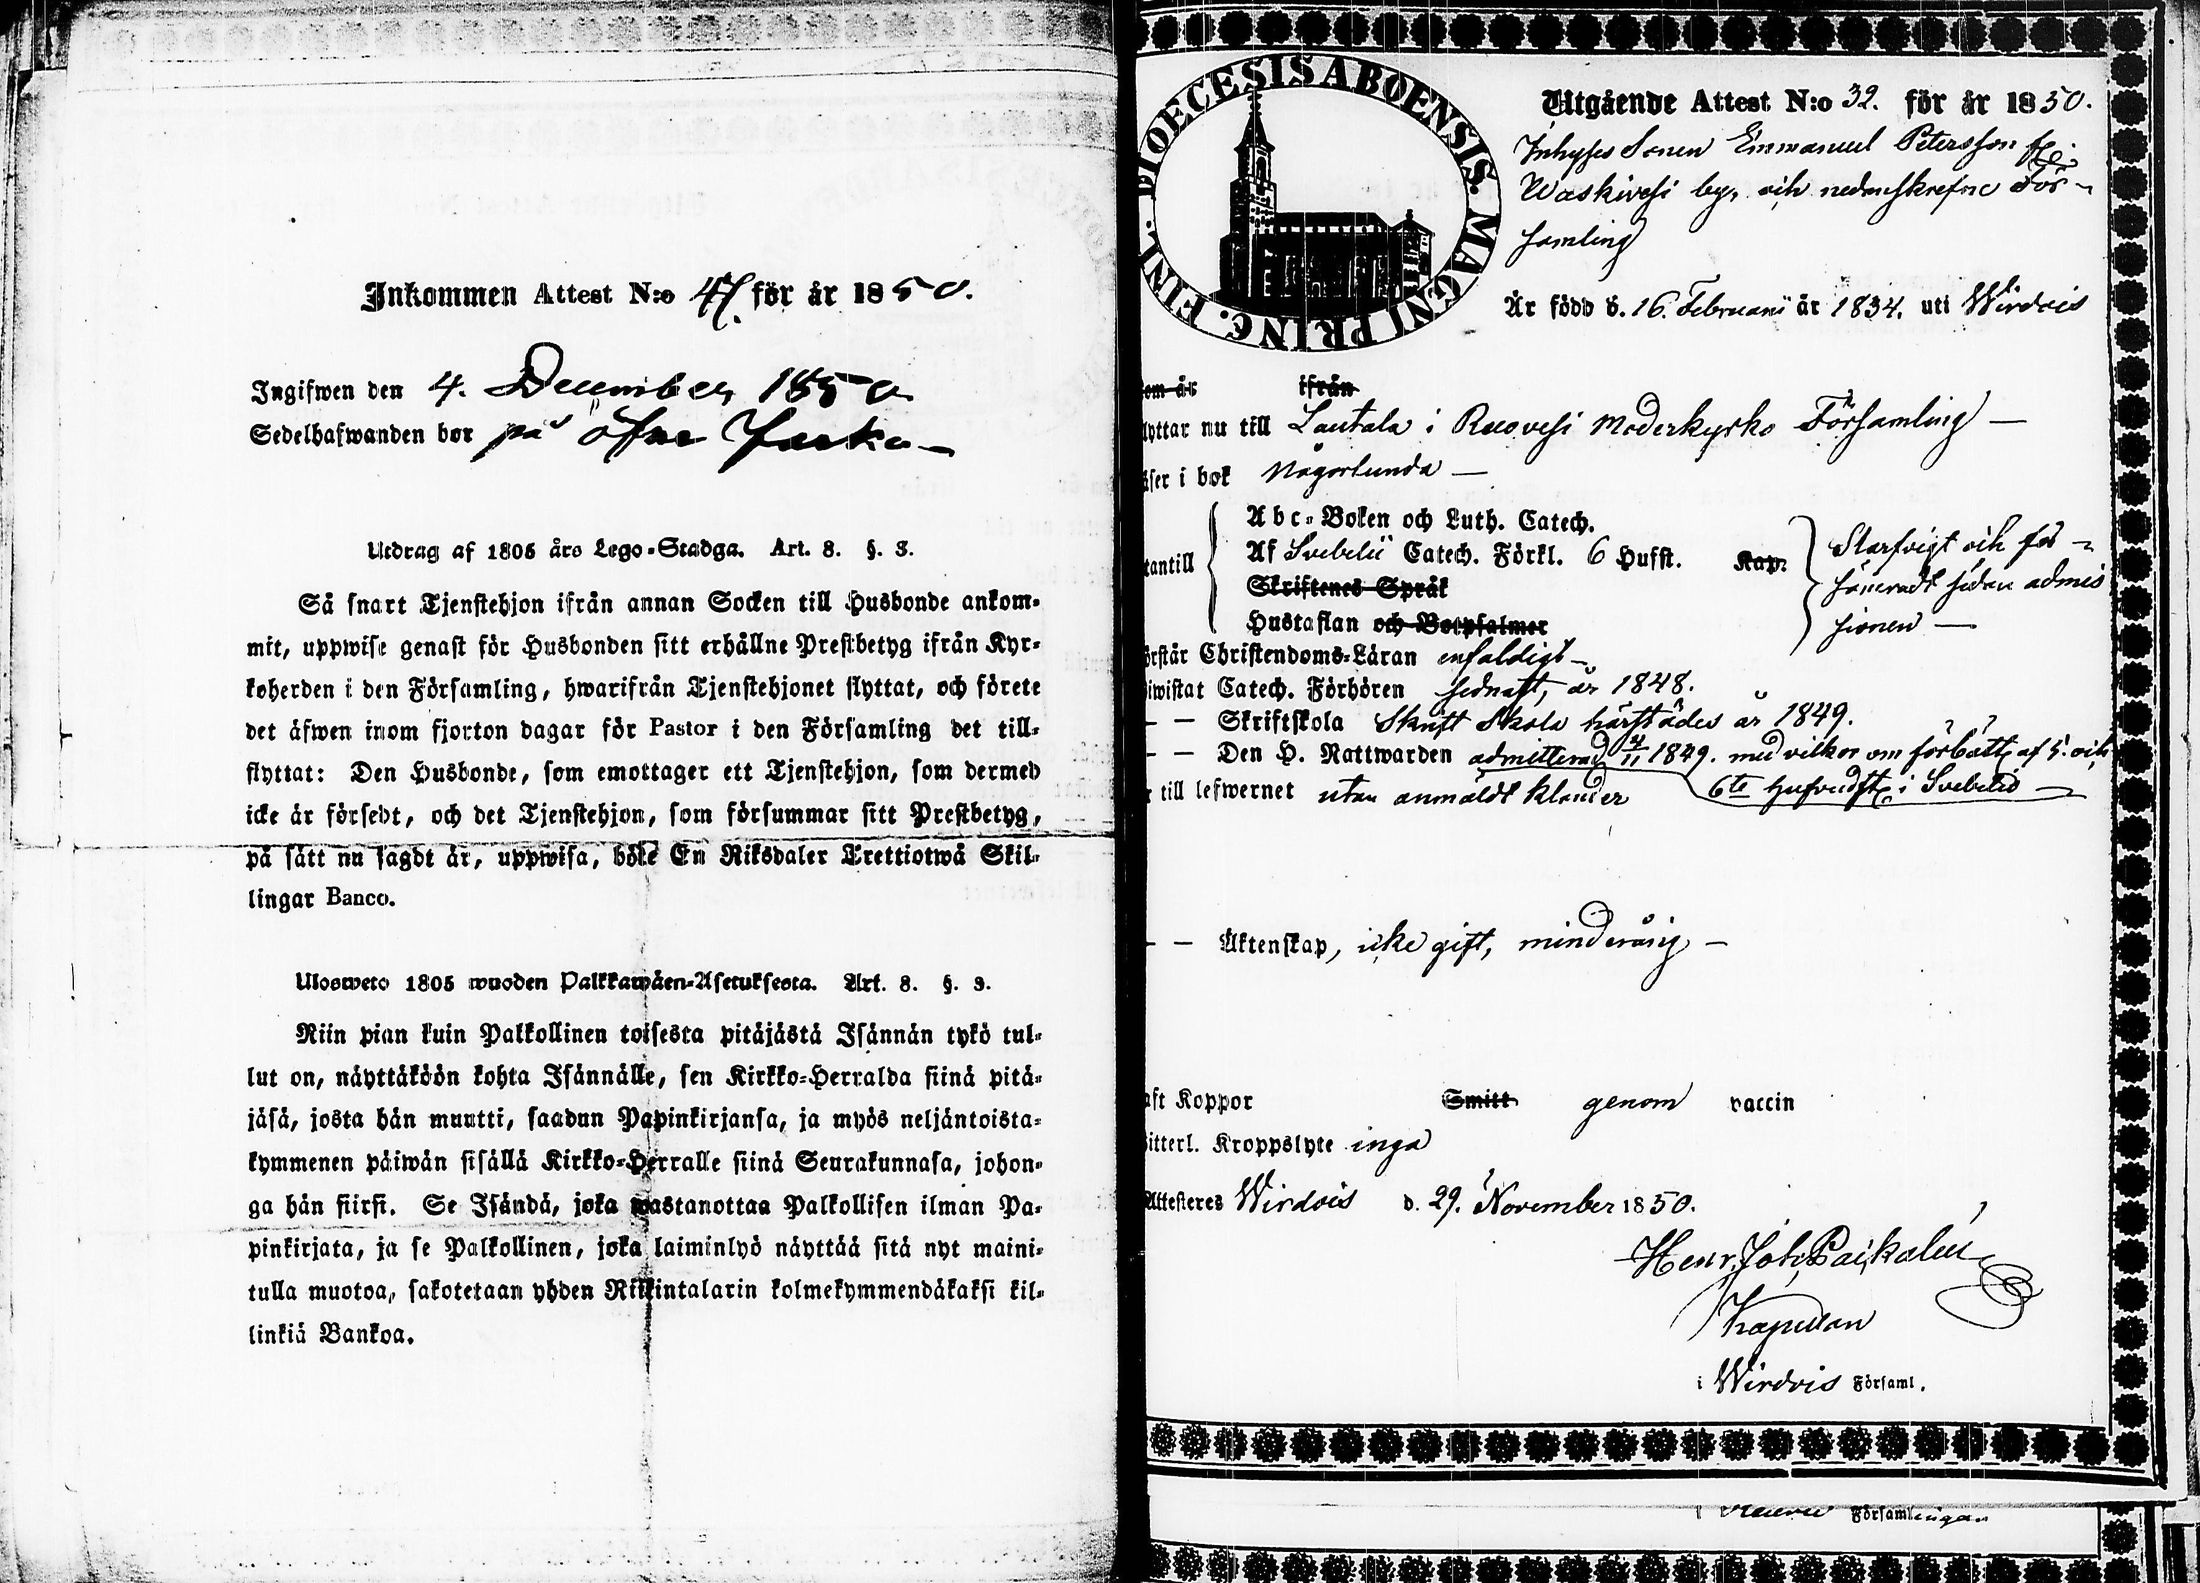 Inkommen Attest N:o 47. för år 1850.
Ingifwen den 4. December 1850
Sedelhafwanden bor på öfre Jerka —
Utdrag af 1805 års Lego-Stadga. Art. 8. §. 3.
Så snart Tjenstehjon ifrån annan Socken till Husbonde ankom-
mit, uppwise genast för Husbonden sitt erhållne Prestbetyg ifrån Kyr-
koherden i den Församling, hwarifrån Tjenstehjonet flyttat, och förete
det äfwen inom fjorton dagar för Pastor i den Församling det till-
flyttat: Den Husbonde, som emottager ett Tjenstehjon, som dermed
icke är försedt, och det Tjenstehjon, som försummar sitt Prestbetyg,
på sätt nu sagdt är, uppwisa, böte En Riksdaler Trettiotwå Skil-
lingar Banco.
Ulosweto 1805 wuoden Palkkawäen-Asetuksesta. Art. 8. §. 3.
Niin pian kuin Palkollinen toisesta pitäjästä Isännän tykö tul-
lut on, näyttäköön kohta Isännälle, sen Kirkko-Herralda siinä pitä-
jäsä, josta hän muutti, saadun Papinkirjansa, ja myös neljäntoista-
kymmenen päiwän sisällä Kirkko-Herralle siinä Seurakunnasa, johon-
ga hän siirsi. Se Isändä, joka wastanottaa Palkollisen ilman Pa-
pinkirjata, ja se Palkollinen, joka laiminlyö näyttää sitä nyt maini-
tulla muotoa, sakotetaan yhden Riikintalarin kolmekymmendäkaksi kil-
linkiä Bankoa.
DIOECESIS ABOENSIS. MAGNI PRINC. FINL.
Utgående Attest N:o 32. för år 1850.
Inhyses Sonen Emmanuel Petersson fr.
Waskivesi by, och nedanskrefne För-
samling
Är född d. 16. Februarii år 1834. uti Wirdois
om år ifrån
lyttar nu till Lautala i Ruovesi Moderkyrko Församling —
äser i bok någorlunda —
Abc-Boken och Luth. Catech.
tantill Af Svebelii Catech. Förkl. 6 Hufst. Kap.
Skriftenes Språk
Hustaflan och Botpsalmer
Slarfvigt och för-
sämradt sedan admis
sionen —
örstår Christendoms-Läran enfaldigt —
iwistat Catech. Förhören sednast, år 1848.
— — Skriftskola Skrift Skola härstädes år 1849.
— — Den H. Nattwarden admitterad 4/11 1849. med vilkor om förbättr. af 5. och
6te Hufvudst. i Svebelio —
r till lefwernet utan anmäldt klander
— — Äktenskap, icke gift, minderårig —
aft Koppor Smitt genom vaccin
itterl. Kroppslyte inga
Attesteres Wirdois d. 29. November 1850.
Henr. Joh. Paikalén
Kapellan
i Wirdois Församl.
i Församlingar